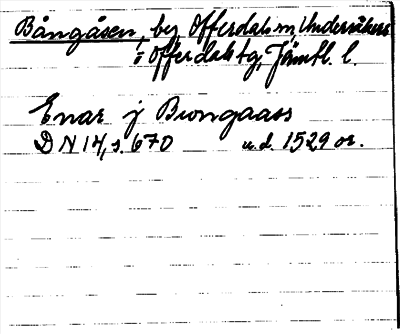 Bångåsen, by, Offerdals sn, Undersåkers
o. Offerdals tg, Jämtl. l.
Enar j Biongaass
DN 14, s. 670 u.d. 1529 or.